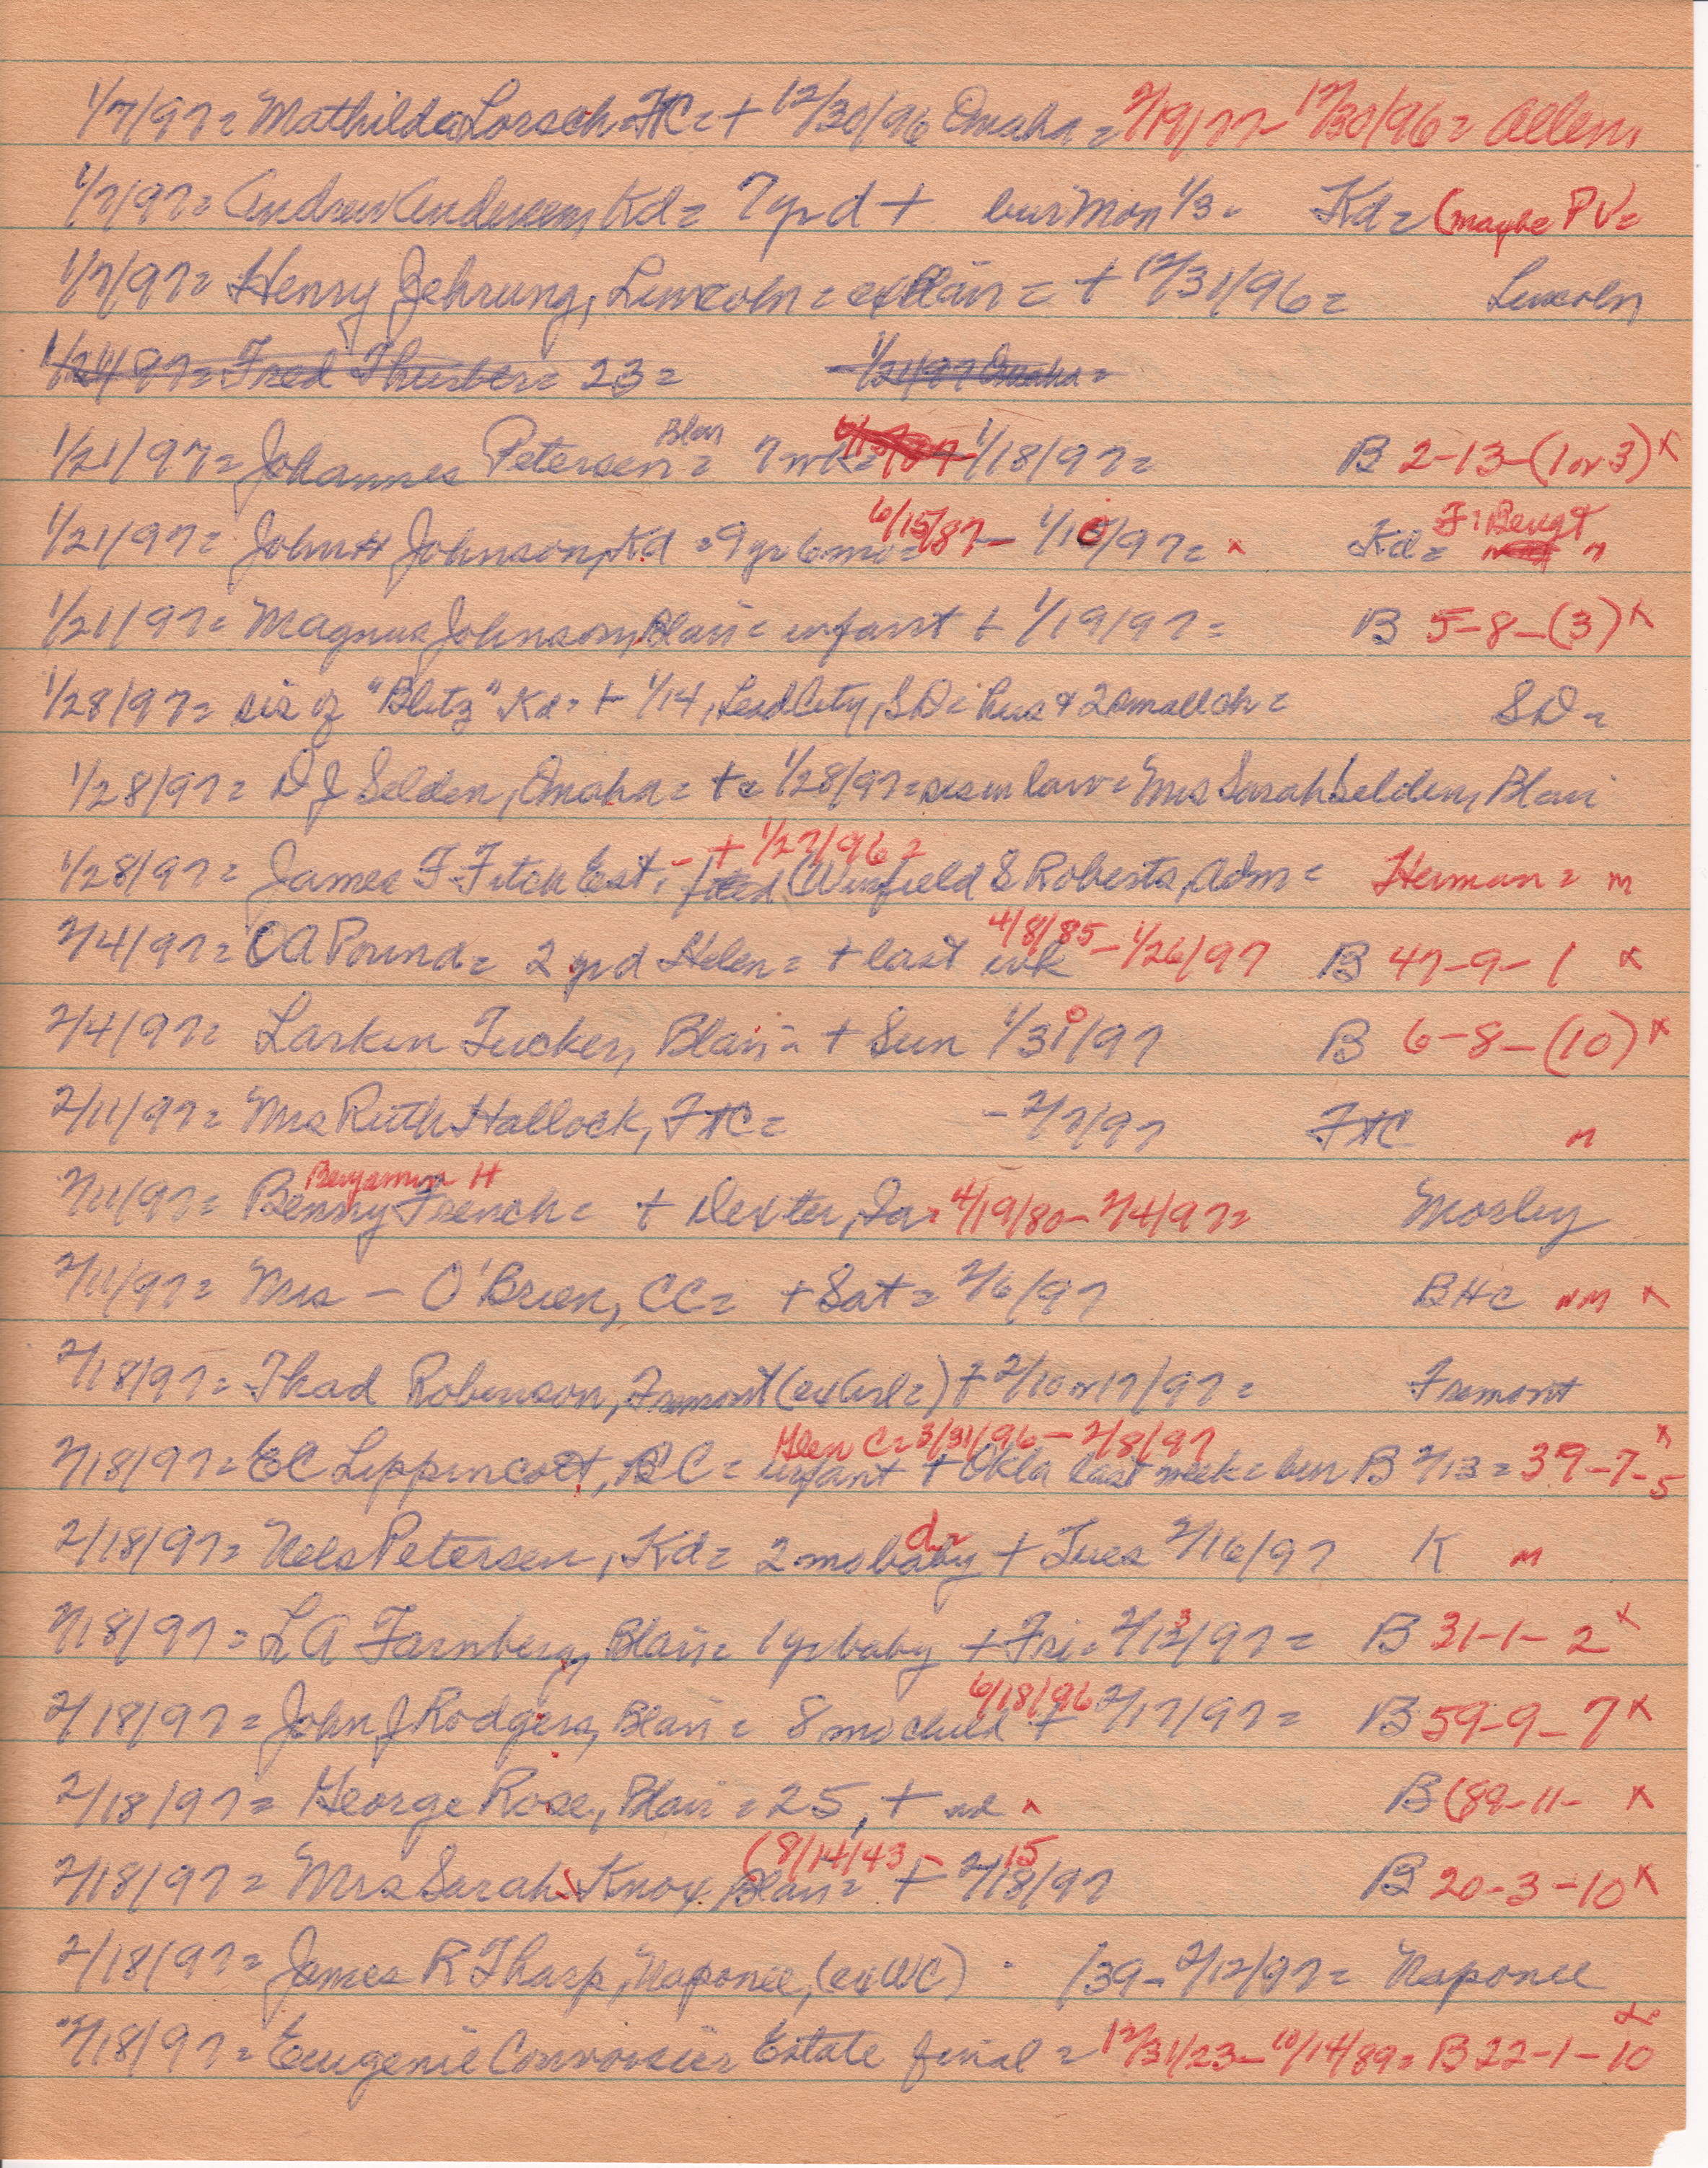 1/7/97= Mathilda Lorsch=FtC=+ 12/30/96 Omaha = 2/19/77- 12/30/96= Allen,
1/7/97= Andrew Andersen, Kd= 7yr d + bur Mon 1/3= Kd= (maybe PV=
1/7/97= Henry Gehrung, Lincoln = ex Blair = + 12/31/96= Lincoln
1/21/97= Fred Thurber= 23= 1/21/97 Omaha=
1/21/97= Johannes Petersen= Blair 7 wk= 1/18/97= B 2-13-(1 or 3) x
1/21/97= John H Johnson, Kd =9yr 6mo= 6/15/87- 1/10/97= x Kd= F: Bengt n
1/21/97= Magnus Johnson, Blair= infant + 1/19/97= B 5-8-(3) x
1/28/97= sis of "Blitz" Kd= + 1/14, Lead City, SD= hus & 2 small ch= SD=
1/28/97= D J Selden, Omaha= += 1/28/97= sis in law= Mrs Sarah Selden, Blair
1/28/97= James F Fitch Est, - + 1/27/96= (Winfield S Roberts, Adm= Herman= n
2/4/97= OA Pound= 2 yr d Helen= + last wk 4/8/85- 1/26/97 B 47-9-1 x
2/4/97= Larkin Tucker, Blair= + Sun 1/31/97 B 6-8-(10) x
2/11/97= Mrs Ruth Hallock, FtC= - 2/7/97 FtC n
2/11/97= Benny French= Benjamin H + Dexter, Ia= 4/19/80- 2/4/97= Mosley
2/11/97= Mrs - O'Brien, CC= + Sat= 2/6/97 BHC nm x
2/18/97= Thad Robinson, Fremont (ex Arl=) + 2/10 or 17/97= Fremont
2/18/97= EC Lippincott, BC= infant + Okla last week= bur B 2/13= Glen C= 3/31/96- 2/8/97 39-7-5 x
2/18/97= Nels Petersen, Kd= 2 mo baby d= + Tues 2/16/97 K n
2/18/97= LA Farnberg, Blair= 1 yr baby + Fri= 2/13/97= B 31-1-2 x
2/18/97= John J Rodgers, Blair= 8 mo child + 6/18/96 2/17/97= B 59-9-7 x
2/18/97= George Rose, Blair= 25, + nd x B (89-11- x
2/18/97= Mrs Sarah Knox, Blair= (8/14/43- + 2/18/97 15 B 20-3-10 x
2/18/97= James R Tharp, Naponee, (ex WC) - /39- 2/12/97= Naponee
2/18/97= Eugenie Convoisier Estate final = 12/31/23- 10/14/89= B 22-1-10